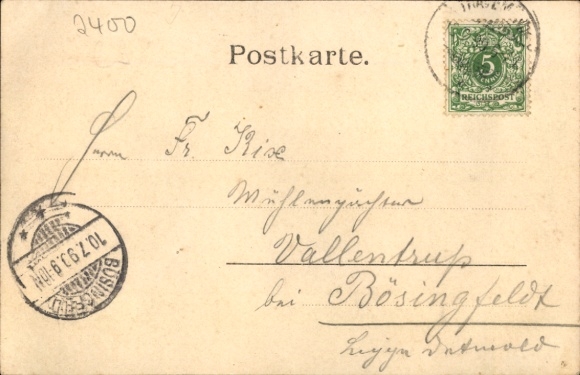 2400
Postkarte.
TRAVEM
5
REICHSPOST
Herrn Fr. Kix
Mühlenpächter
Vallentrup
bei Bösingfeldt
Lippe Detmold
BÜSINGFELD
10.7.99.9-10N.